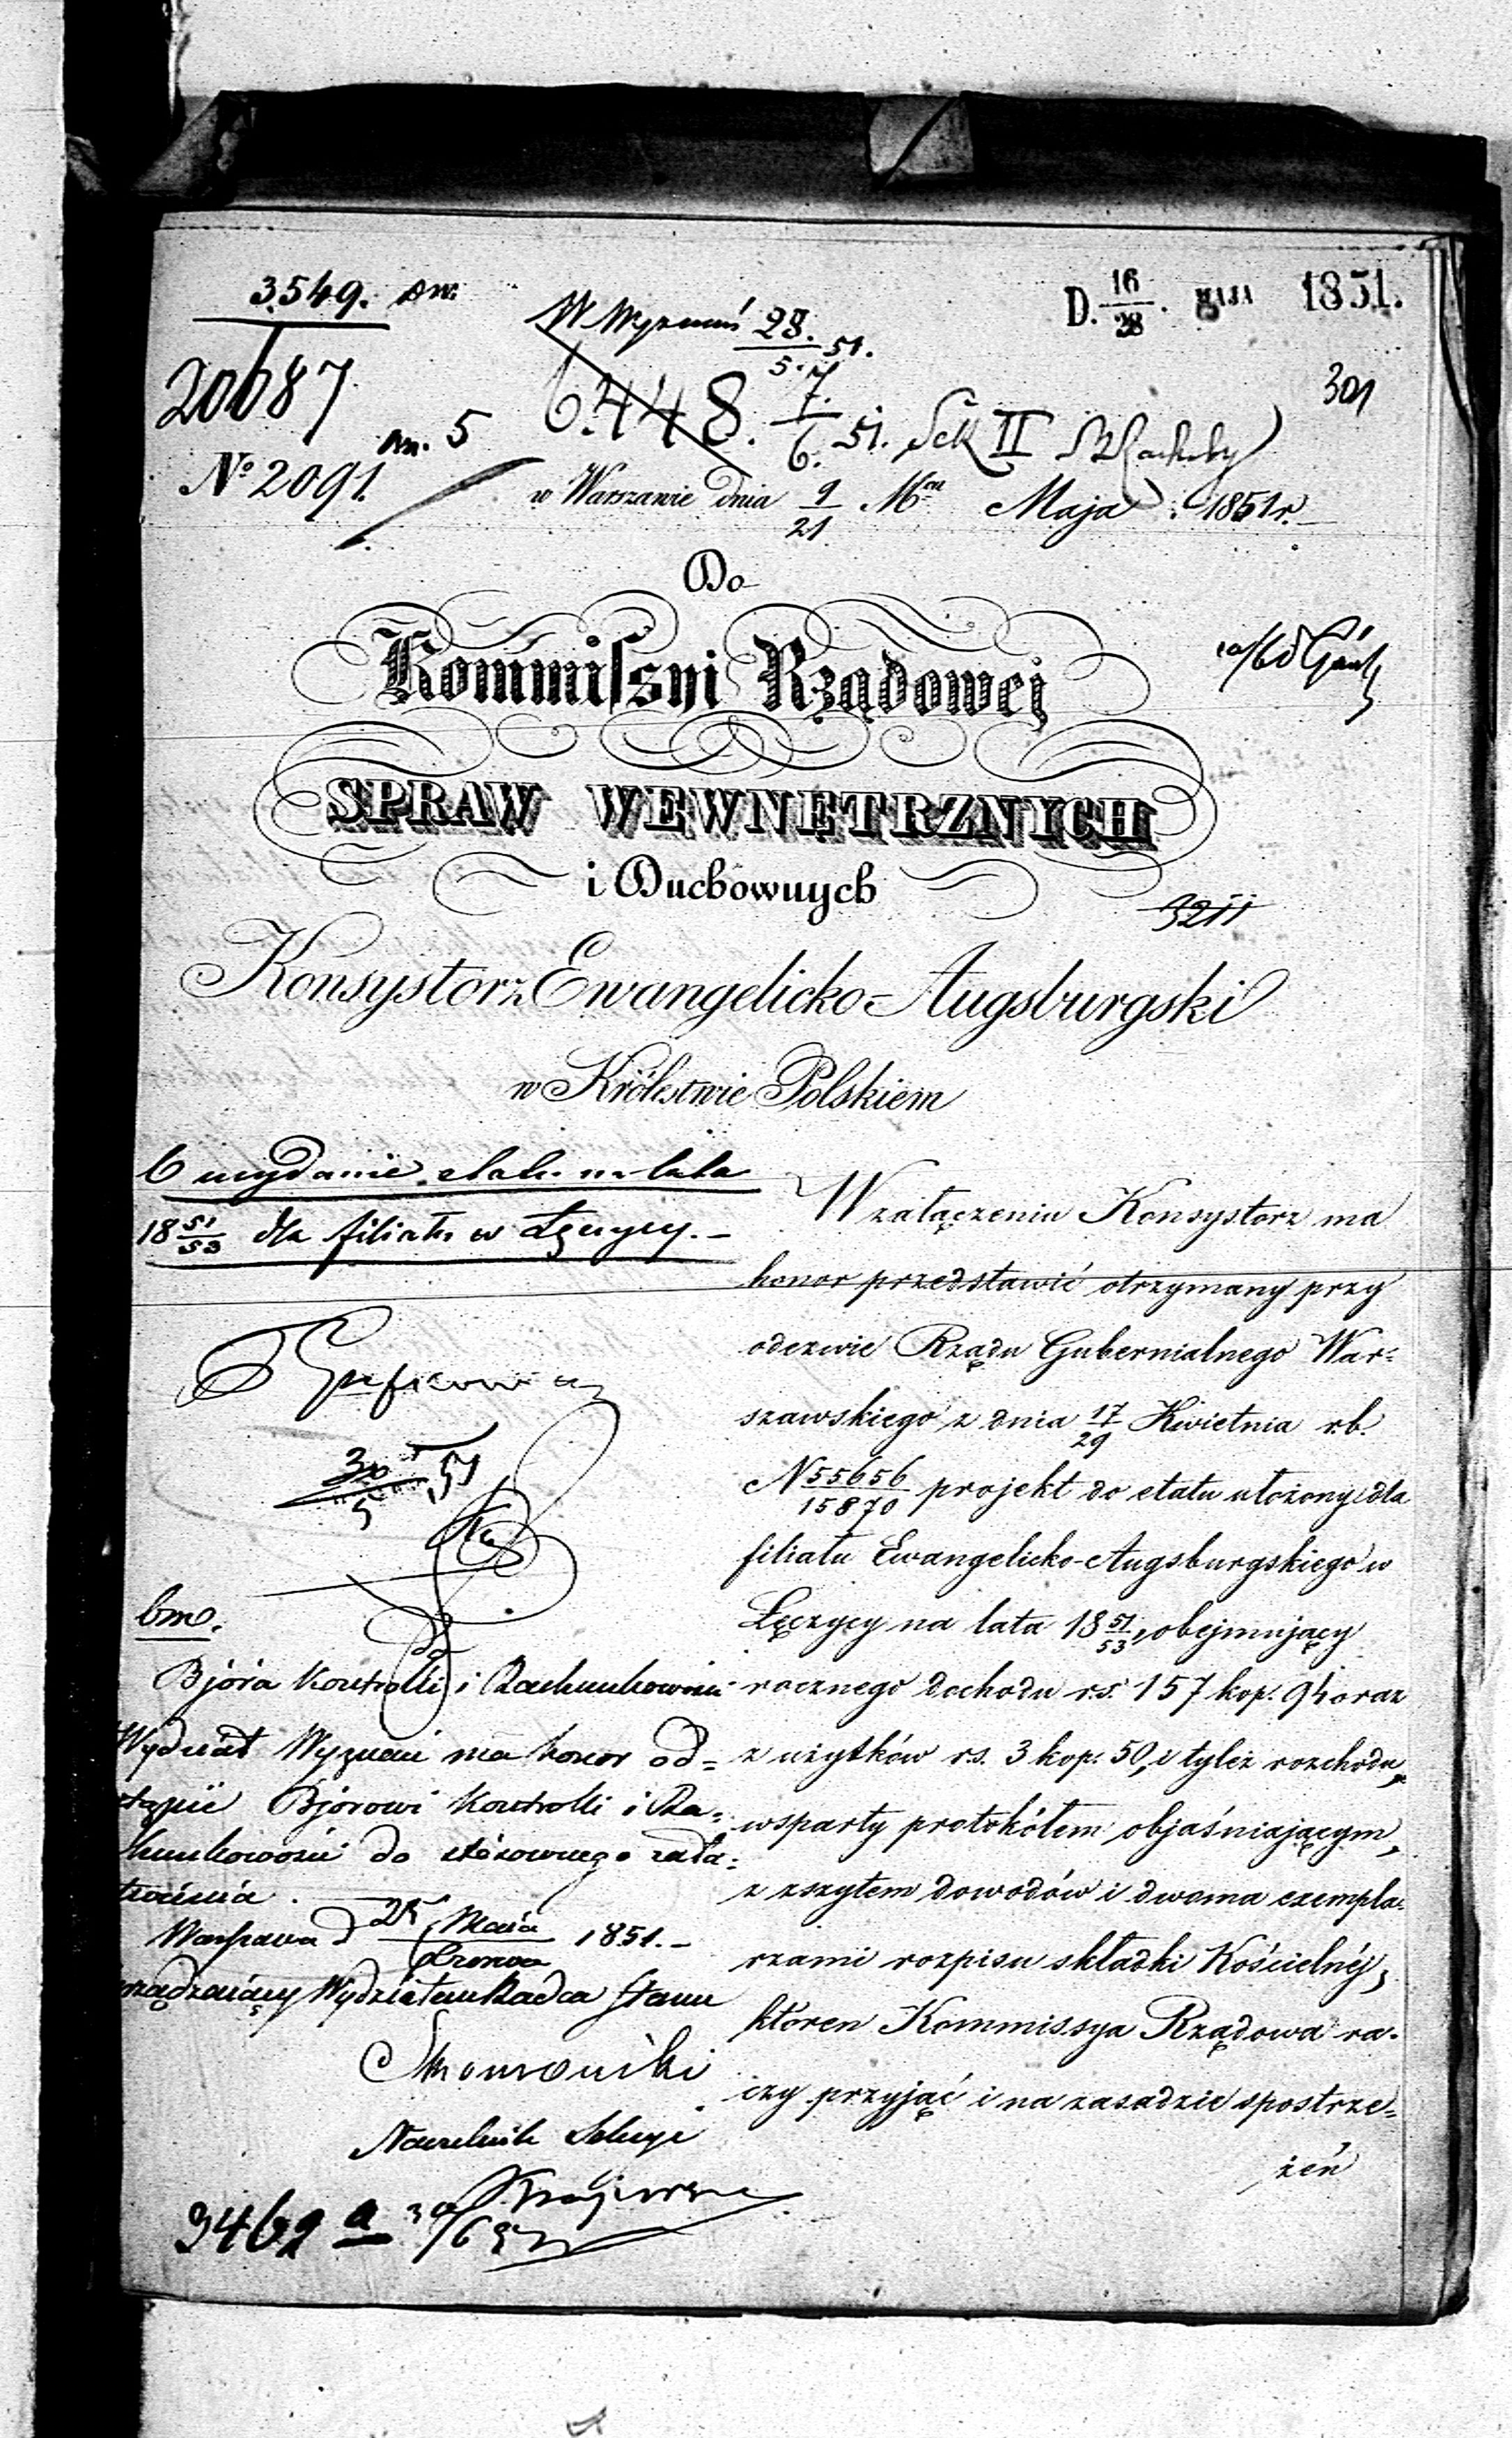 3549.
D. 16/28. MAJA 1851.
W Wyznań 28./5. 51.
20687
301
6.448. 7./6. 51. Sek II
5
№ 2091.
w Warszawie dnia 9/21 Mca Maja 1851 r.
Do
Kommissyi Rządowej
SPRAW WEWNĘTRZNYCH
i Duchownych
3211
Konsystorz Ewangelicko-Augsburgski
w Królestwie Polskiem
O wydanie etatu na lata
18 51/53 dla filiału w Łęczycy. –
W załączeniu Konsystorz ma
honor przedstawić otrzymany przy
odezwie Rządu Gubernialnego War-
szawskiego z dnia 17/29 Kwietnia r.b.
N 55656/15870 projekt do etatu ułożony dla
filiału Ewangelicko-Augsburgskiego w
Łęczycy na lata 18 51/53, obejmujący
rocznego dochodu r.s. 157 kop. 94 oraz
z użytków r.s. 3 kop. 50, i tyleż rozchodu,
wsparty protokółem objaśniającym,
z zszytem dowodów i dwoma exempla-
rzami rozpisu składki Kościelnéj,
któren Kommissya Rządowa ra-
czy przyjąć i na zasadzie spostrze-
żeń
30/5 51
bm.
Do
Bjóra Kontrolli i Rachunkowości
Wydział Wyznań ma honor od-
stąpić Bjórowi Kontrolli i Ra-
chunkowości do stósownego zała-
twienia.
Warszawa d 25 Maja/Czerwca 1851. –
Zarządzający Wydziałem Radca Stanu
Naczelnik Sekcyi
3462 a